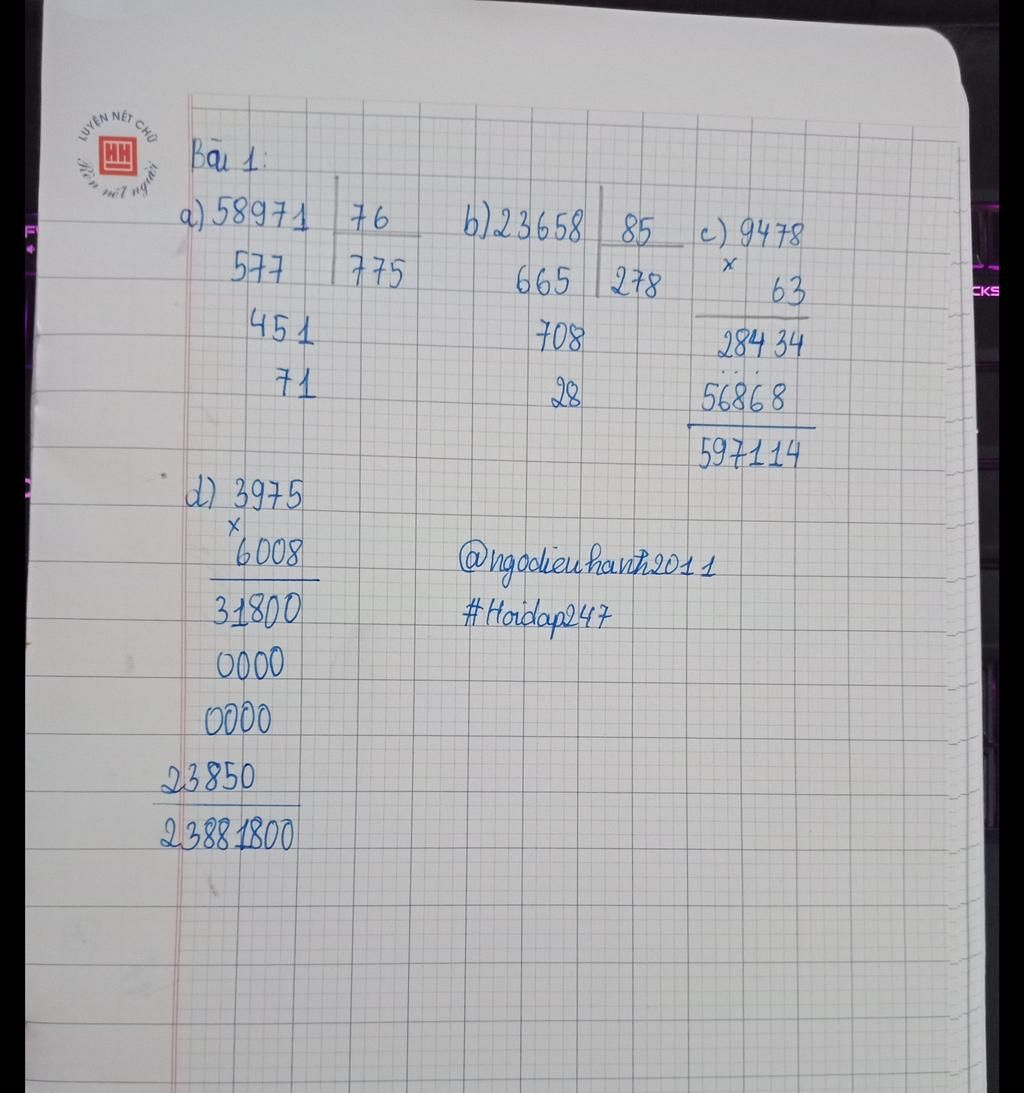 LUYỆN NÉT CHỮ
HH
Rèn nết người
Bài 1:
a) 58971 | 76
577 775
451
71
b) 23658 | 85
665 278
708
28
c) 9478
x
63
28434
56868
597114
d) 3975
x
6008
31800
0000
0000
23850
23881800
@ngodieuhanh2011
#Hoidap247
CKS